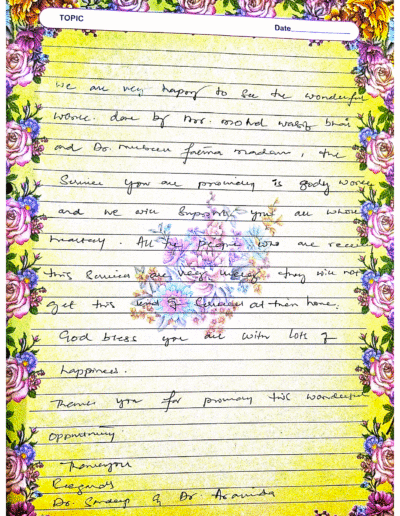 TOPIC
Date
we are very happy to see the wonderful
work done by Mr. Mohd wasif bhai
and Dr. fatima madam, the
Service you are providing is godly work
and we will support you all whole
heartedly. All the people who are
this service are very they will not
get this kind of at their home.
God bless you all with lots of
happiness.
Thank you for providing this wonderful
opportunity.
Thankyou
Regards
Dr. Sandeep & Dr. Aravinda